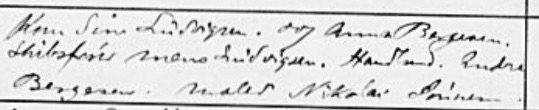 Kom Sine Ludvigsen. og Anna Bergesen.
Skibsfører Mons Ludvigsen. Handlsmd. Endre
Bergesen. Maler Nikolai